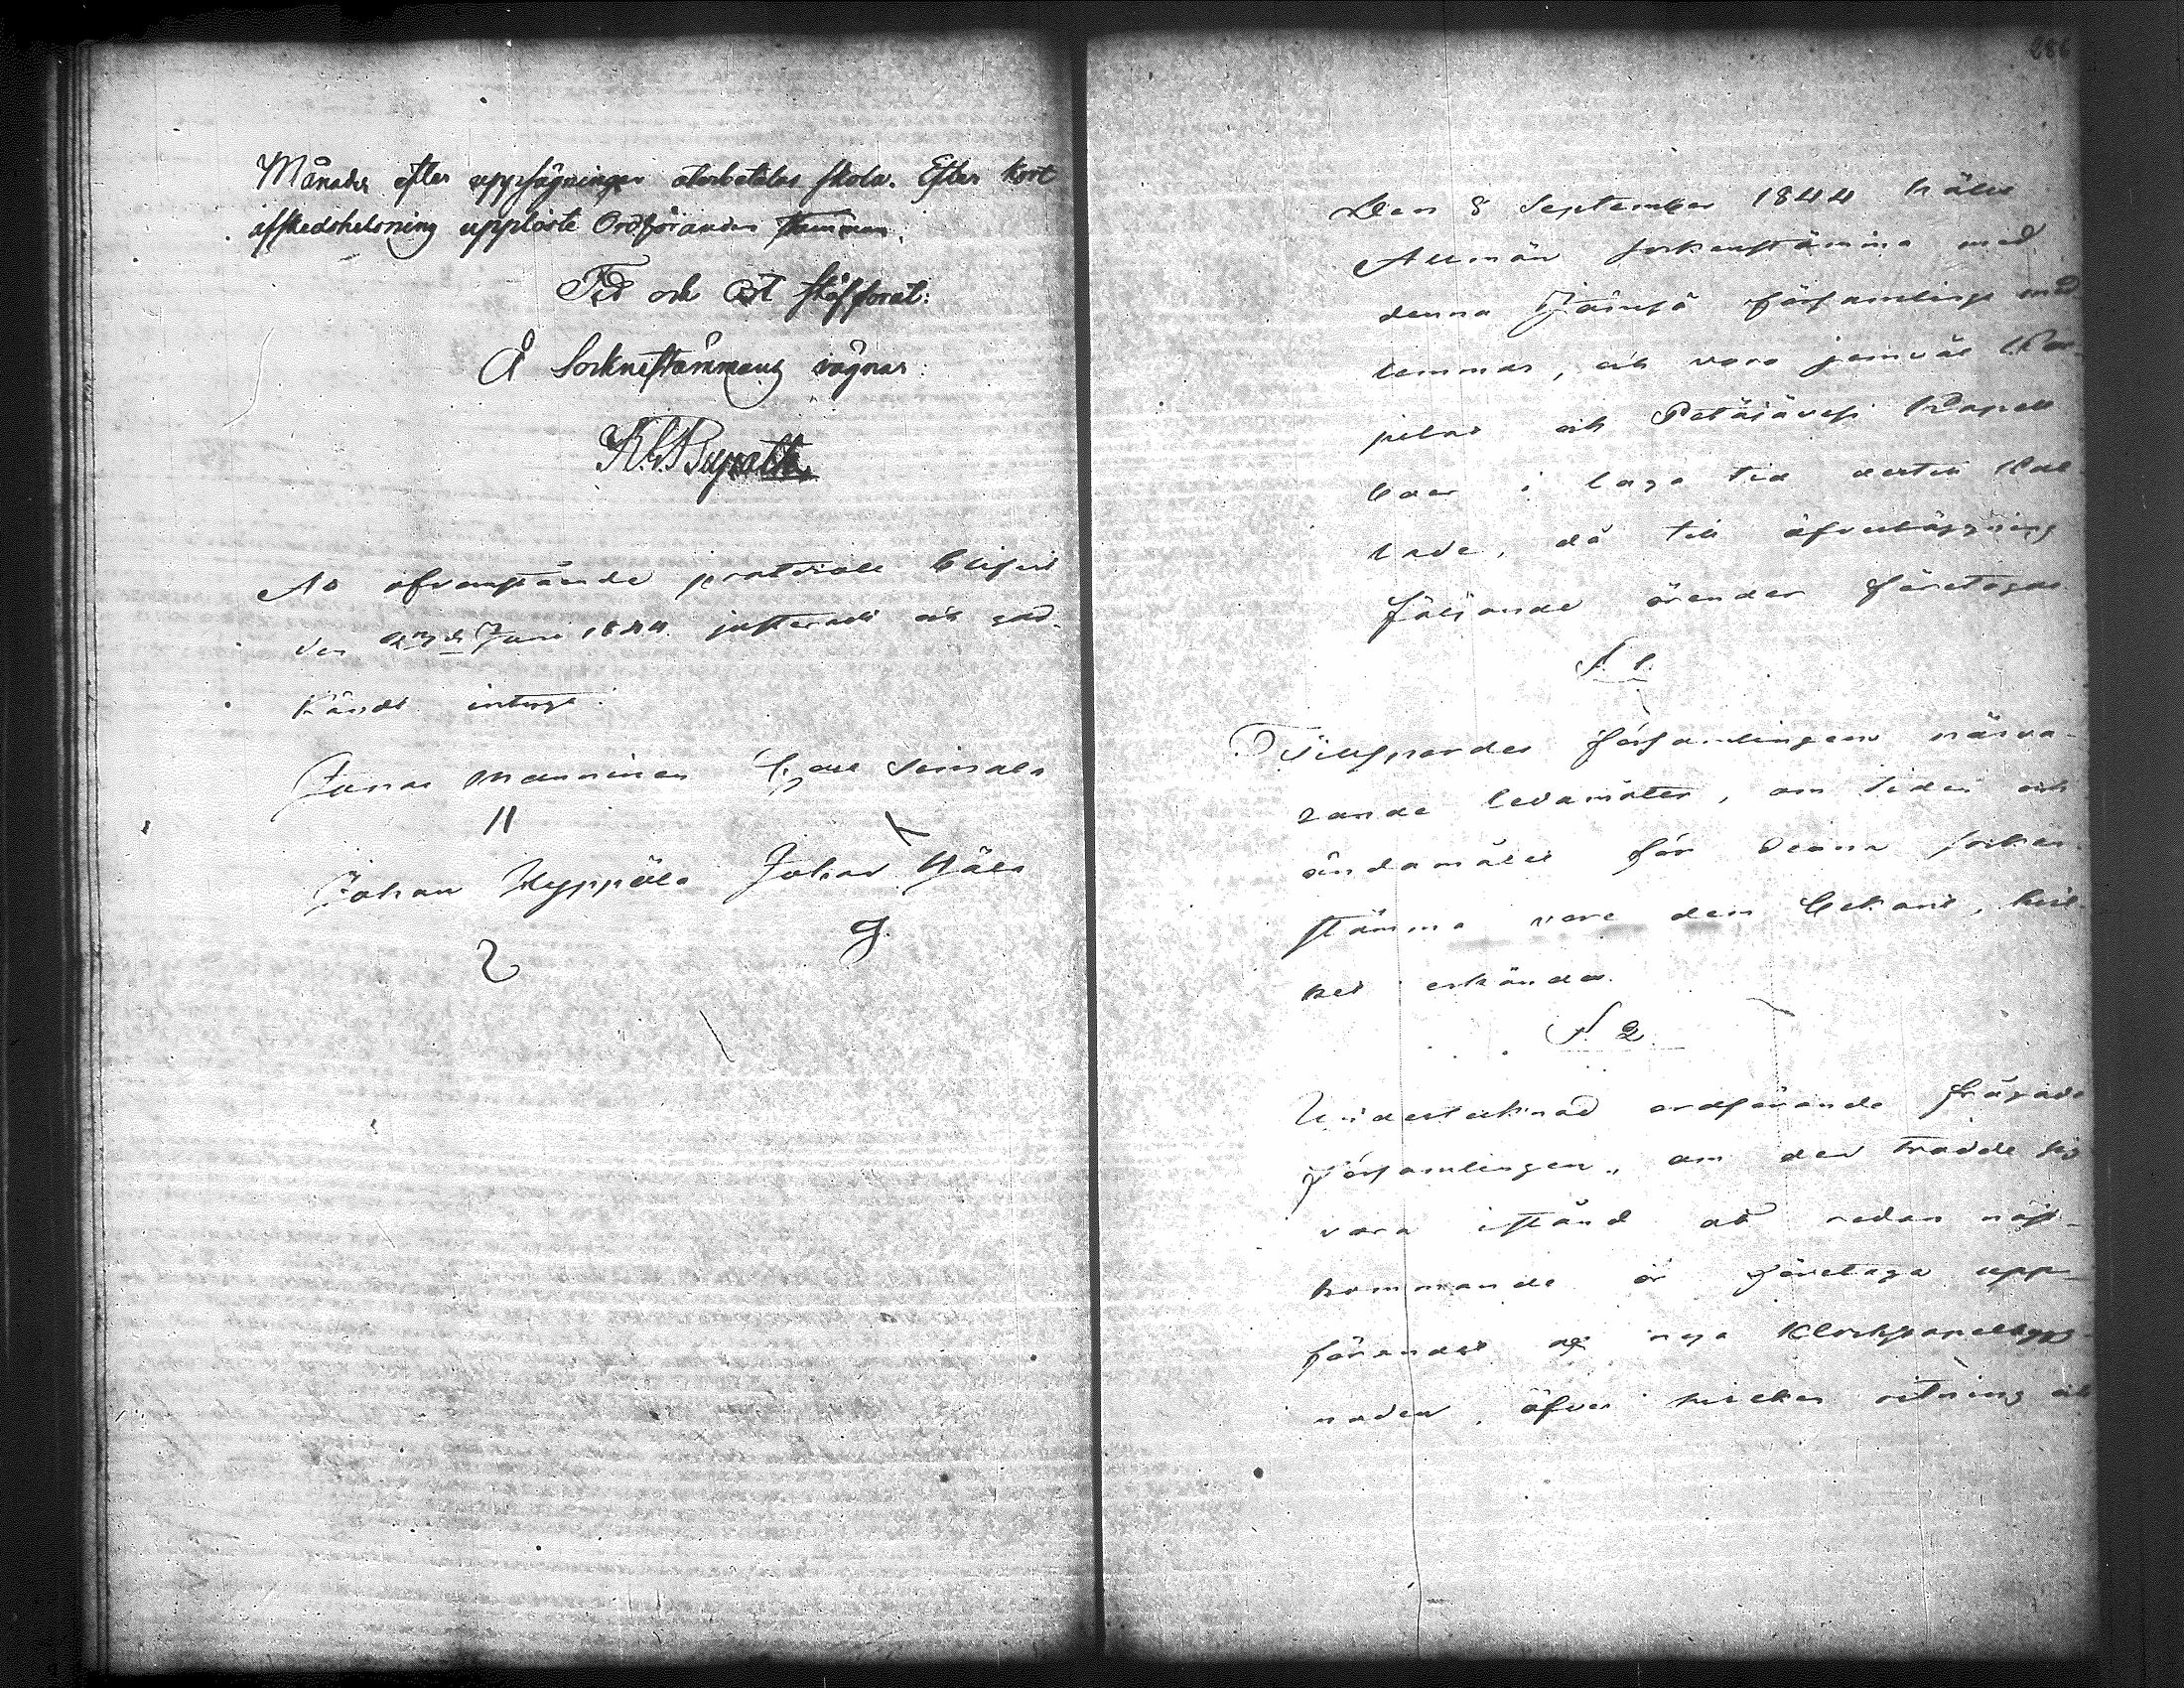 Månader efter uppsägningen återbetalas skola. Efter kort
afskedshelsning upplöste Ordföranden stämman.
Tid och Ort skof forat:
Å Sockenstämmans vägnar:
At ofvanstående protocoll blifvit
den 23 Juni 1844 justeradt och god-
kändt intyga:
Jonas Manninen
Johan Hyppölä Johan
286
Den 8 September 1844 hölts
Allmän sockenstämma med
denna Jämsä församlings med-
lemmar, och voro jemväl Kor-
pilax och Petäjävesi Kapell
boer i laga tid dertill kal-
lade, då till öfverläggning
följande ärender företogos.
§. 1.
Tillspordes församlingens närva-
rande ledamöter, om tiden och
ändamålet för denna socken-
stämma vore dem bekant, hvil-
ket erkändes.
§. 2.
Undertecknad ordförande frågade
församlingen, om den trodde sig
vara istånd att redan näst-
kommande år företaga upp-
förandet af nya Klockstapelbygg-
naden, öfver hvilken ritning och